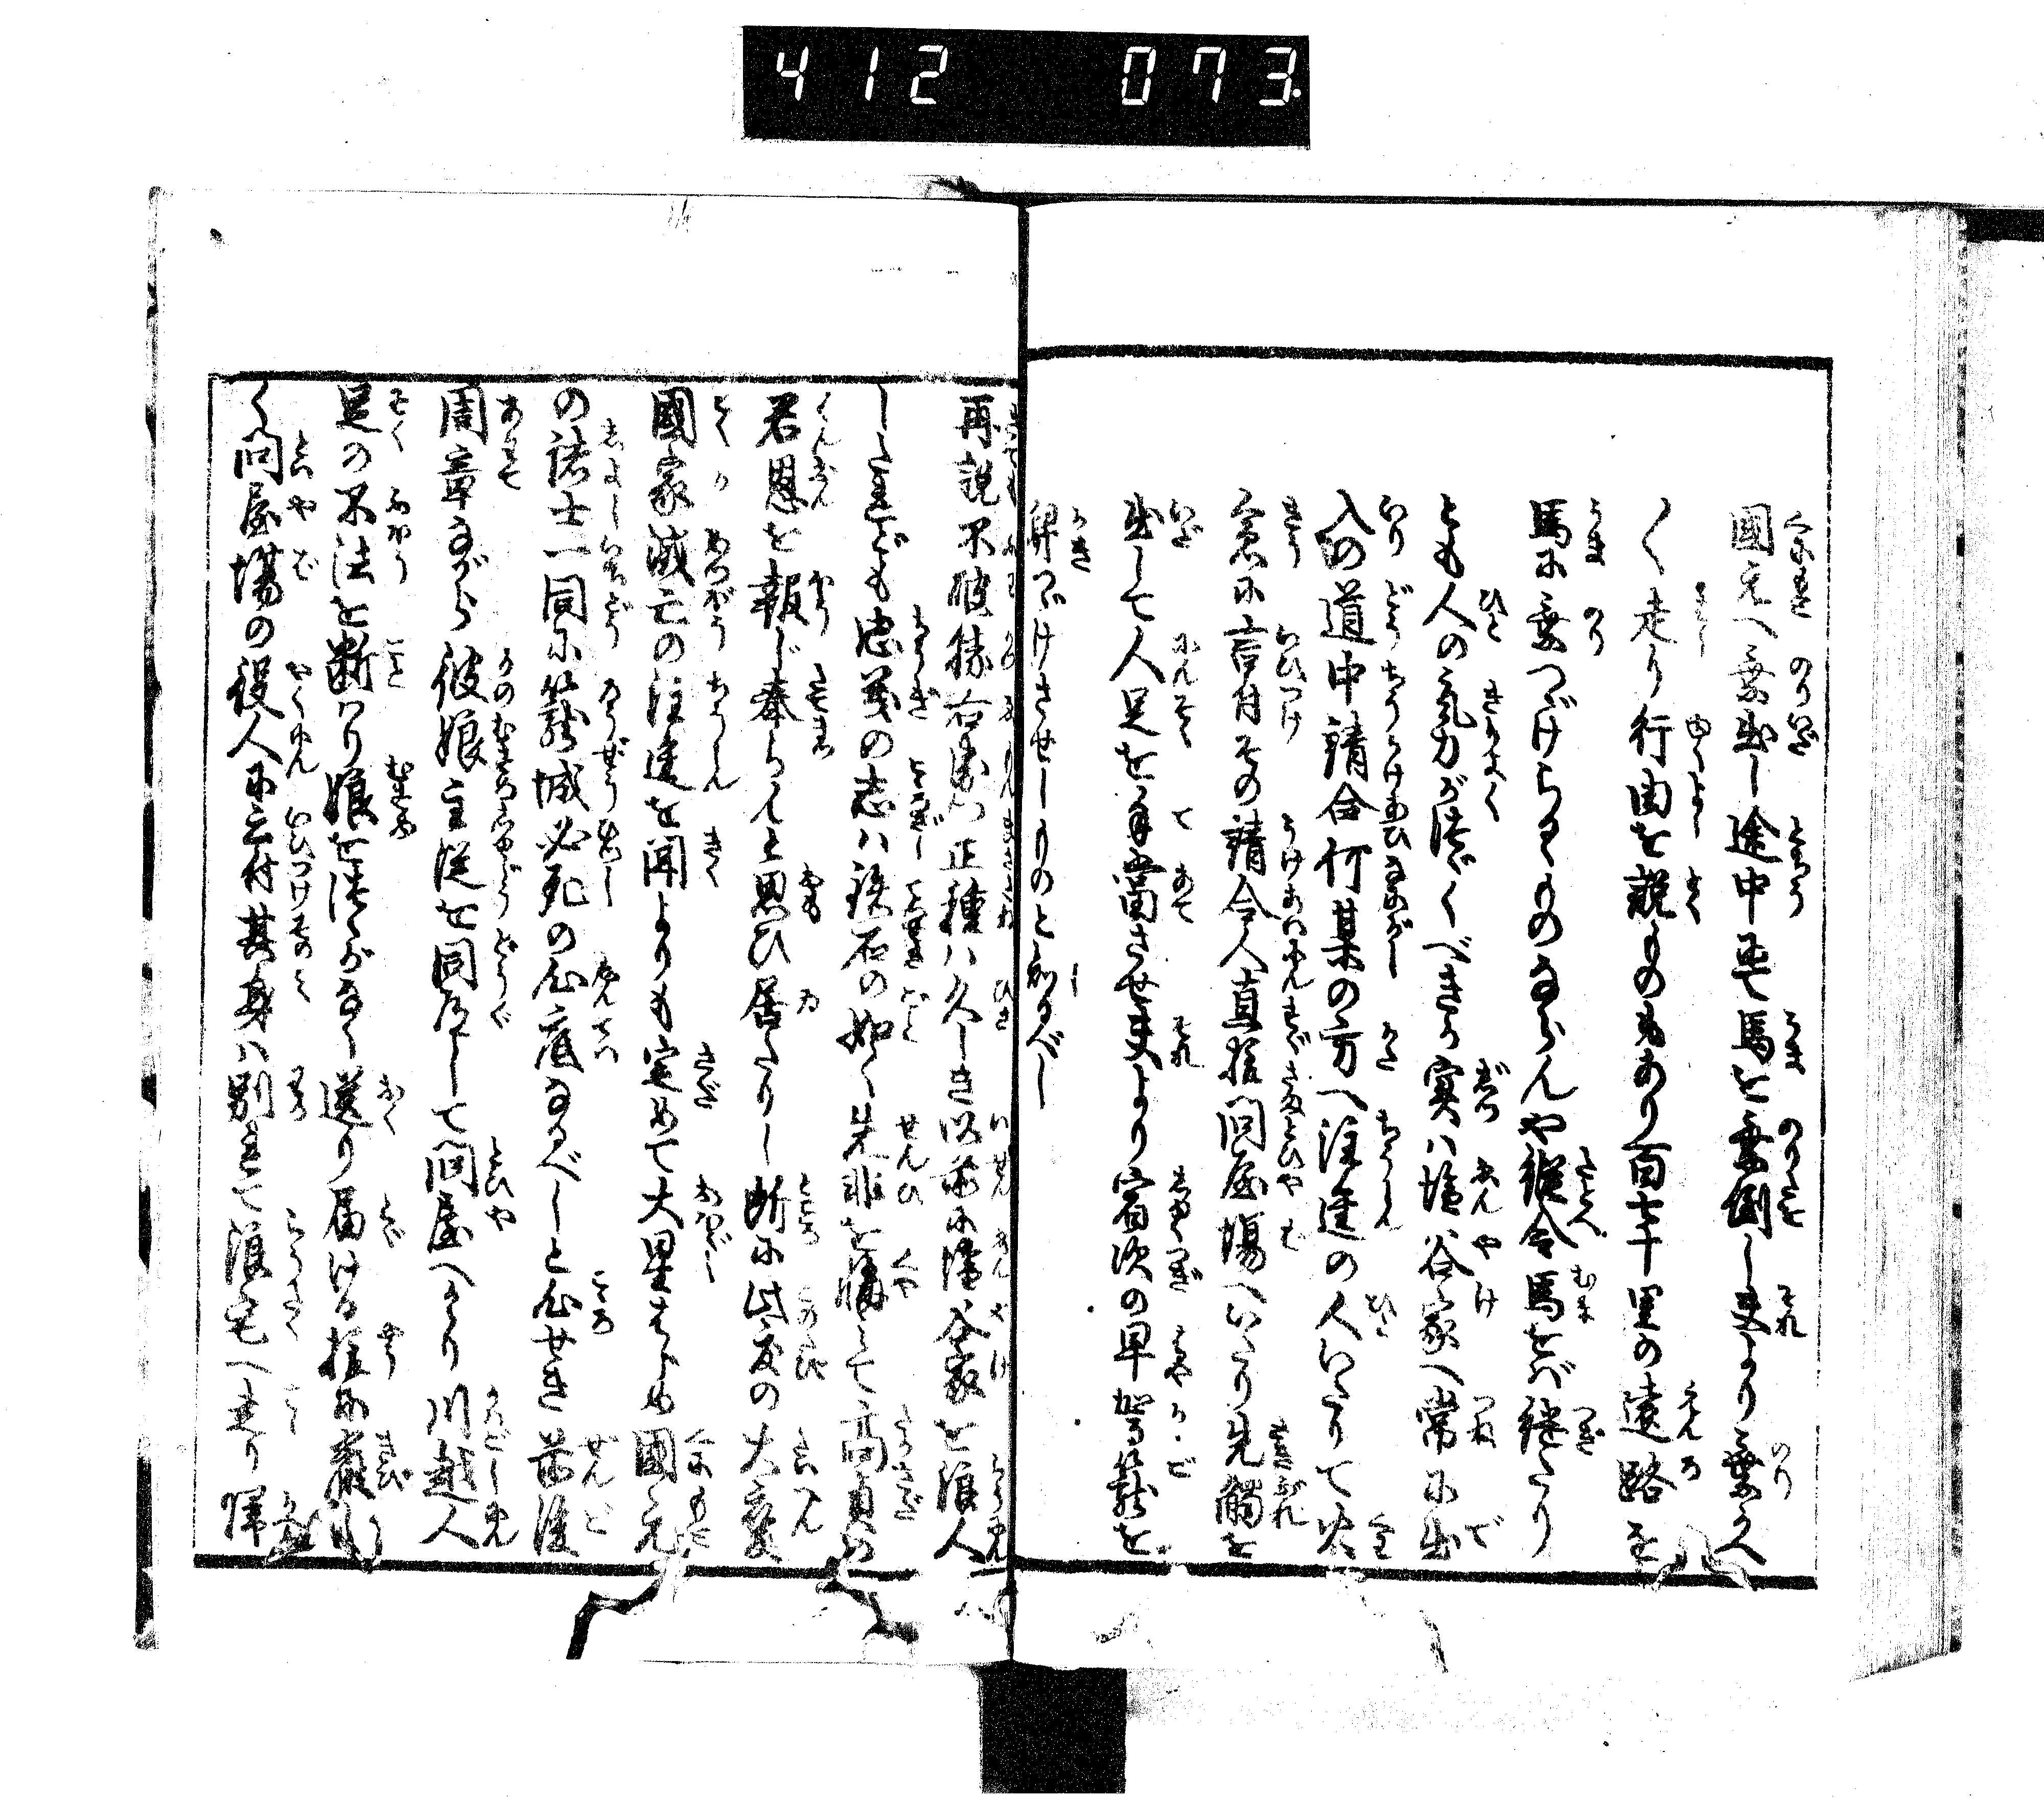 412 073.
國元へ乗出し途中にて馬を乗倒し夫より乗かへ
〱走り行由を説ものもあり百七十里の遠路を
馬に乗つゞけらるゝものならんや縦令馬をば継たり
とも人の氣力が續くべきか實は塩谷家へ常に出
入の道中請合何某の方へ注進の人いたりて火
急に言付その請合人直様問屋場へいたり先觸を
出して人足を手當させ夫より宿次の早駕籠を
舁つゞけさせしものと知るべし
再説不破勝右衛門正種は久しき以前に塩谷家を浪人
したれども忠義の志は鉄石の如く先非を悔て高貞の
君恩を報じ奉らんと思ひ居たりし折に此度の大変
國家滅亡の注進を聞よりも定めて大星はじめ國元
の諸士一同に籠城必死の心底なるべしと心せき前後
周章ながら彼娘主従を同道して問屋へかゝり川越人
足の不法を断り娘を滞がなく送り届ける様に嚴し
く問屋場の役人に云付其身は別れて浪宅へ走り帰